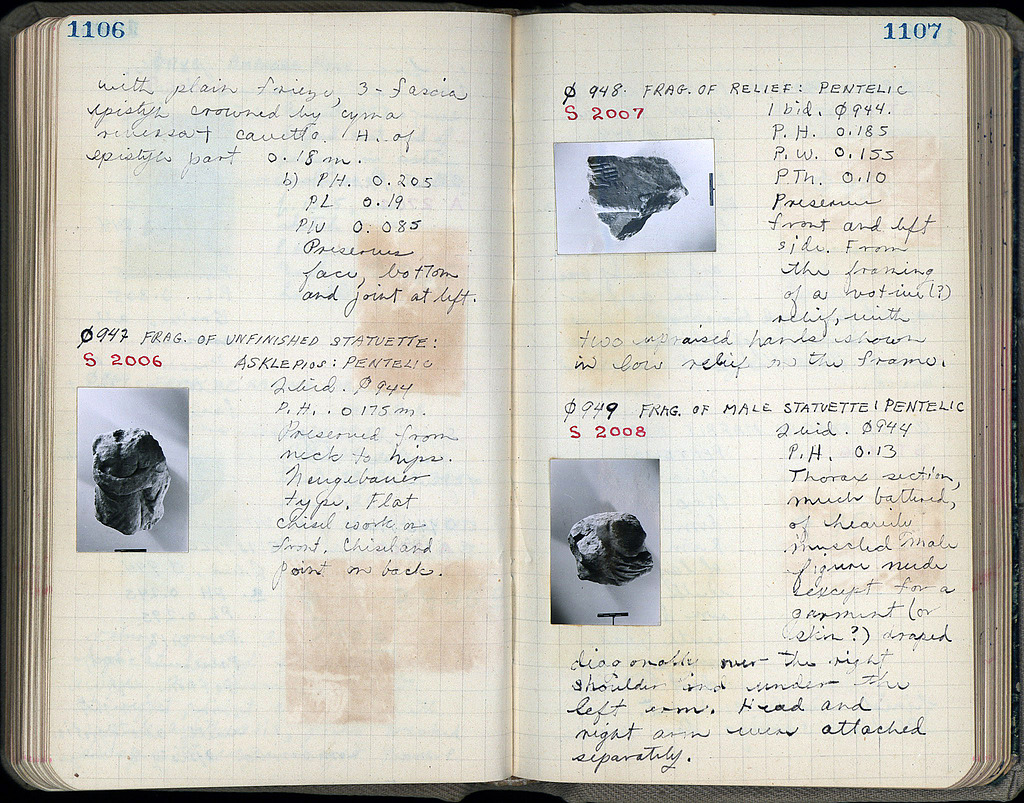 1106
with plain frieze, 3-fascia
epistyle crowned by cyma
reversa + cavetto. H. of
epistyle part 0.18 m.
b) P.H. 0.205
P.L. 0.19
P.W. 0.085
Preserves
face, bottom
and joint at left.
Ø947 FRAG. OF UNFINISHED STATUETTE:
S 2006 ASKLEPIOS: PENTELIC
Ibid. Ø944
P.H. 0.175 m.
Preserved from
neck to hips.
Neugebauer
type. Flat
chisel work on
front. Chisel and
point on back.
1107
Ø 948. FRAG. OF RELIEF: PENTELIC
S 2007
Ibid. Ø944.
P.H. 0.185
P.W. 0.155
P.Th. 0.10
Preserves
front and left
side. From
the framing
of a votive (?)
relief, with
two upraised hands shown
in low relief on the frame.
Ø949 FRAG. OF MALE STATUETTE: PENTELIC
S 2008
Ibid. Ø944
P.H. 0.13
Thorax section,
much battered,
of heavily
muscled male
figure nude
except for a
garment (or
skin?) draped
diagonally over the right
shoulder and under the
left arm. Head and
right arm were attached
separately.